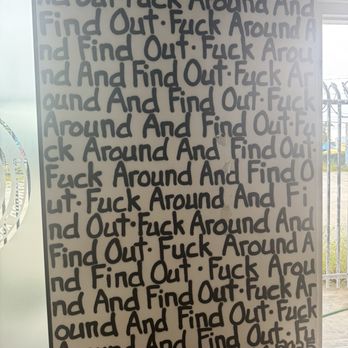 nd Out Fuck Around And
Find Out · Fuck Around A
nd Find Out · Fuck Arou
nd And Find Out · Fuck Ar
ound And Find Out · Fuck
Around And Find Out · Fu
ck Around And Find Out ·
Fuck Around And Find O
ut · Fuck Around And Fi
nd Out · Fuck Around And
Find Out · Fuck Around A
nd Find Out · Fuck Arou
nd And Find Out · Fuck Ar
ound And Find Out · Fuck
Around And Find Out · Fu